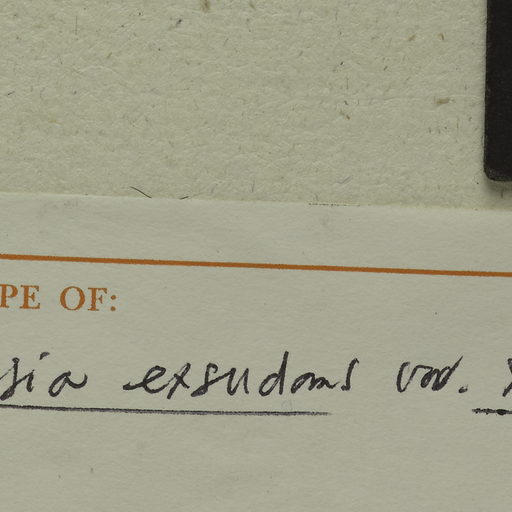 PE OF:
sia exsudans var.